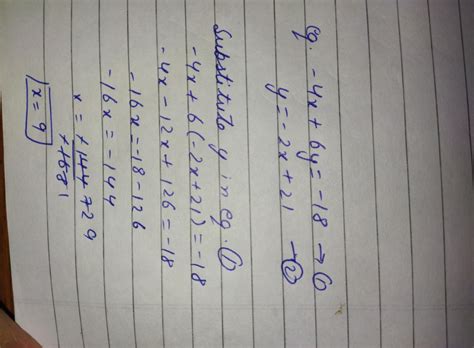 eg. -4x + 6y = -18 → ①
y = -2x + 21 → ②
Substitute y in eg. ①
-4x + 6(-2x+21) = -18
-4x - 12x + 126 = -18
-16x = -18 - 126
-16x = -144
x = +144 72 9
+16 8 1
x = 9